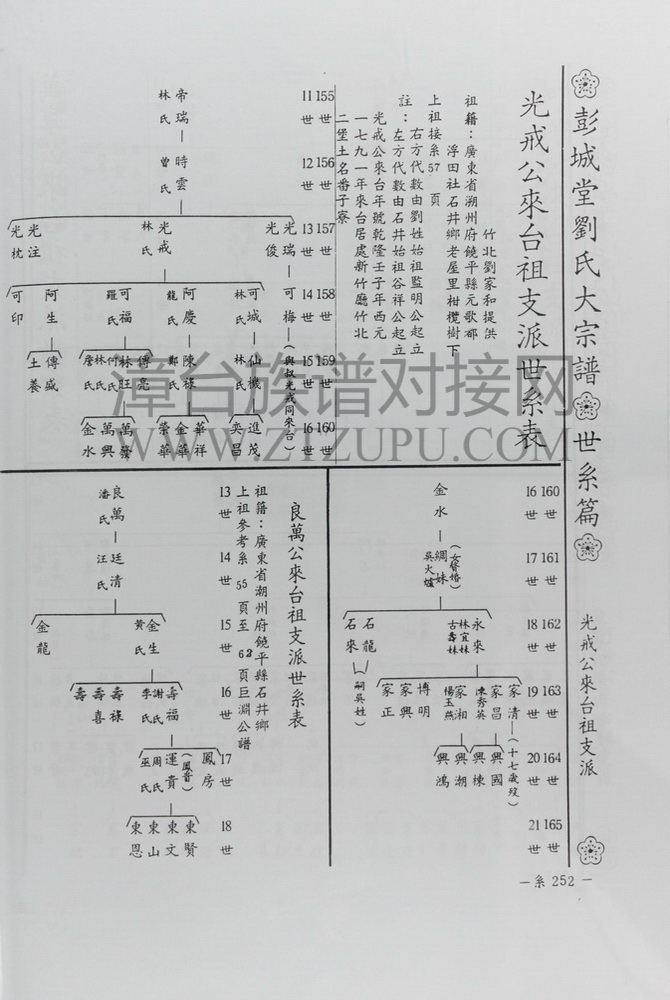 彭城堂劉氏大宗譜
世系篇
光戒公來台祖支派
光戒公來台祖支派世系表
竹北劉家和提洪
祖籍：廣東省潮州府饒平縣元歌都
浮田社石井鄉老屋里柑欖樹下
上祖接系57頁
註：右方代數由劉姓始祖監明公起立
左方代數由石井始祖谷祥公起立
光戒公來台年號乾隆壬子年西元
一七九一年來台居處新竹廳竹北
二堡土名番子寮
11世 155世
帝瑞
林氏
12世 156世
時雲
曾氏
13世 157世
光瑞
光俊
光戒
林氏
光注
光枕
14世 158世
可梅
（與叔光戒同來台）
可城
林氏
阿慶
龍氏
可福
羅氏
阿生
可印
15世 159世
仙機
林氏
陳祿
鄭氏
傳亮
林旺
何氏
林氏
詹氏
傳盛
土養
16世 160世
進茂
奕昌
華祥
金華
榮華
萬發
萬興
金水
16世 160世
金水
17世 161世
綢妹
（女贅婚）
吳火爐
18世 162世
永來
林宜妹
古壽妹
石龍
石來
嗣吳姓
19世 163世
家清
（十七歲歿）
家昌
陳秀英
家湘
楊玉燕
博明
家興
家正
20世 164世
興國
興棟
興潮
興鴻
21世 165世
良萬公來台祖支派世系表
祖籍：廣東省潮州府饒平縣石井鄉
上祖參考系55頁至63頁巨淵公譜
13世
良萬
潘氏
14世
廷清
汪氏
15世
金生
黃氏
金龍
16世
壽福
謝氏
李氏
壽祿
壽喜
壽
17世
鳳房
運貴
（鳳音）
周氏
巫氏
18世
東賢
東文
東山
東恩
—系 252—
漳台族谱对接网
WWW.ZTZUPU.COM